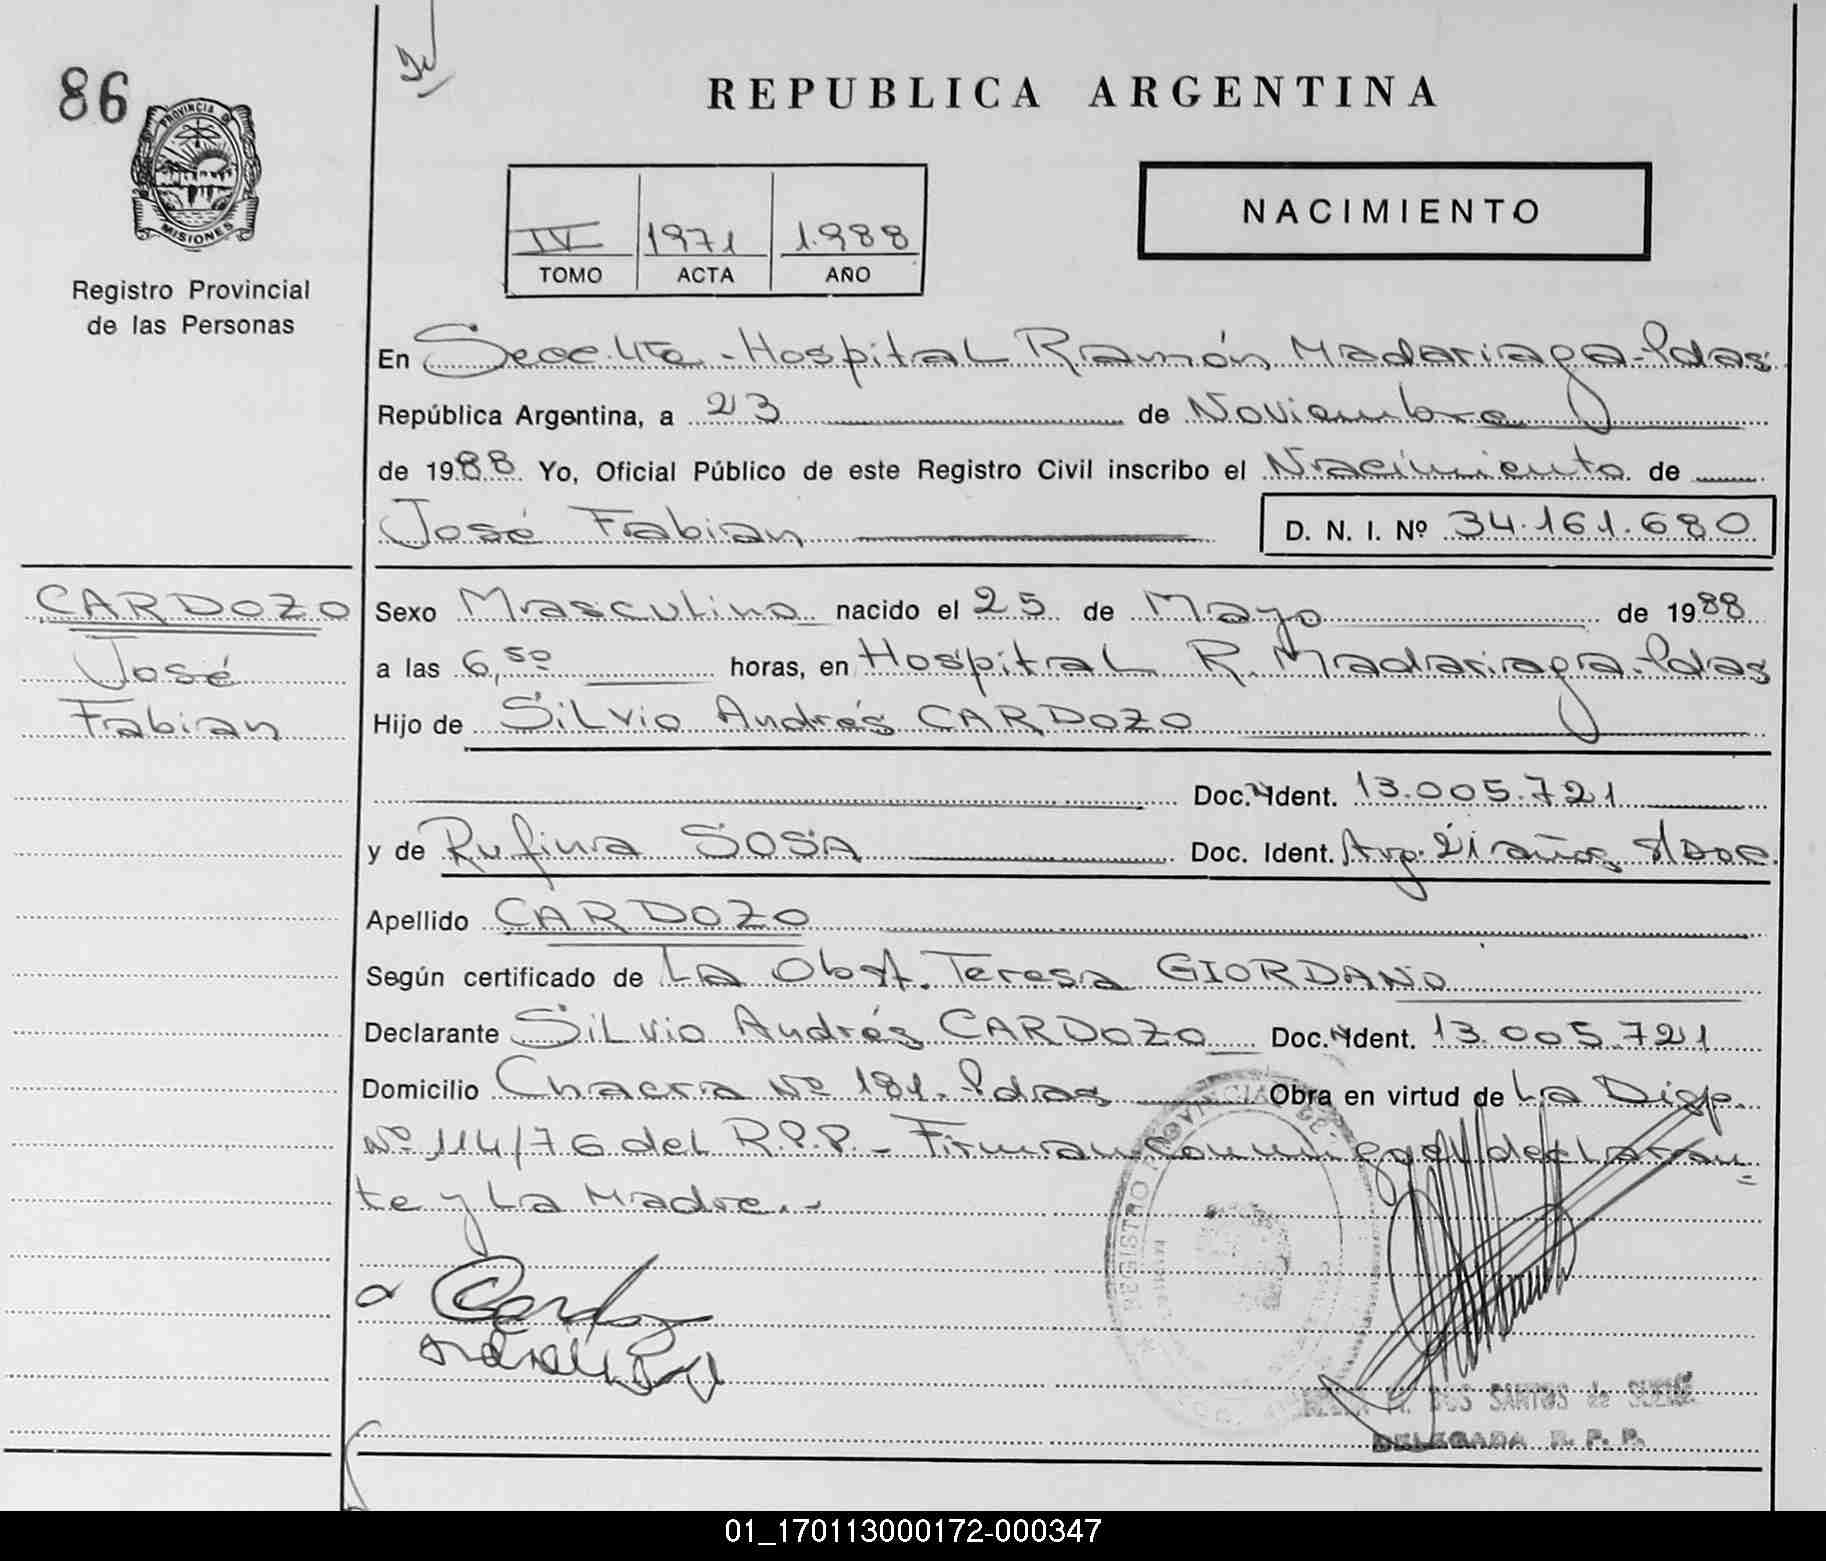 86
REPUBLICA ARGENTINA
PROVINCIA DE
MISIONES
Registro Provincial
de las Personas
IV 1971 1.988
TOMO ACTA AÑO
NACIMIENTO
En Secc. 4ta - Hospital Ramón Madariaga - Pdas.
República Argentina, a 23 de Noviembre
de 1988 Yo, Oficial Público de este Registro Civil inscribo el Nacimiento de
José Fabian
D. N. I. Nº 34.161.680
CARDOZO
José
Fabian
Sexo Masculino nacido el 25 de Mayo de 1988
a las 6,50 horas, en Hospital R. Madariaga - Pdas
Hijo de Silvio Andrés CARDOZO
Doc. Ident. 13.005.721
y de Rufina SOSA Doc. Ident. Arg. 21 años s/Doc.
Apellido CARDOZO
Según certificado de La Obst. Teresa GIORDANO
Declarante Silvio Andrés CARDOZO Doc. Ident. 13.005.721
Domicilio Chacra Nº 181. Pdas Obra en virtud de La Disp.
Nº 114/76 del R.P.P. - Firman conmigo el declaran
te y La Madre. -
REGISTRO PROVINCIAL DE
DOS SANTOS de
DELEGADA R. P. P.
01_170113000172-000347